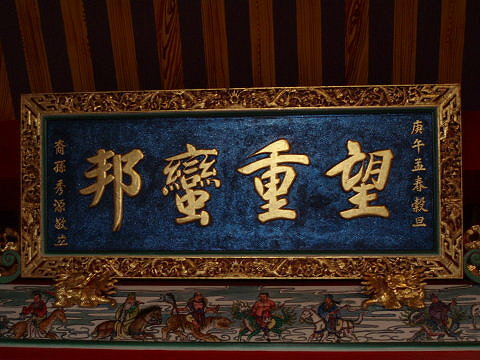 庚午孟春穀旦
望重蠻邦
裔孫秀源敬立